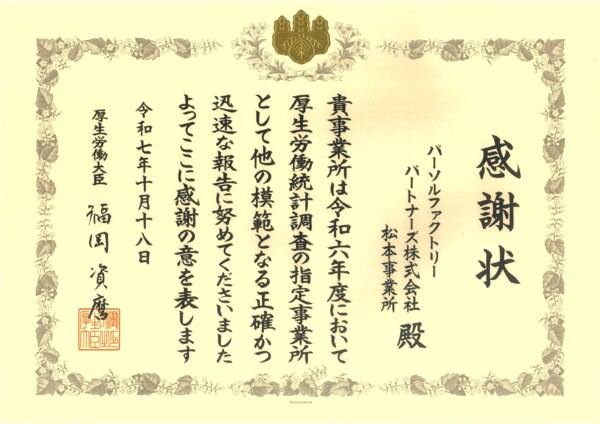 感謝状
パーソルファクトリー
パートナーズ株式会社
松本事業所 殿
貴事業所は令和六年度において
厚生労働統計調査の指定事業所
として他の模範となる正確かつ
迅速な報告に努めてくださいました
よってここに感謝の意を表します
令和七年十月十八日
厚生労働大臣 福岡資麿